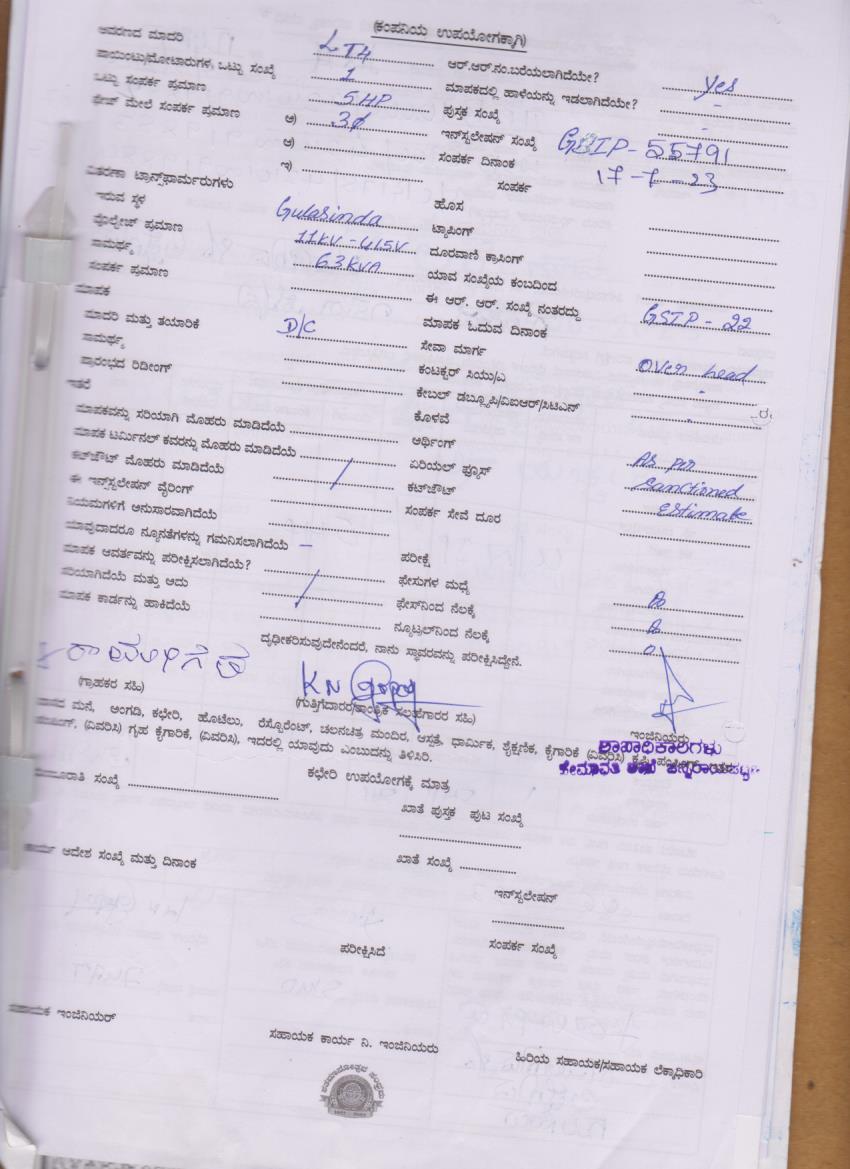 (ಕಂಪನಿಯ ಉಪಯೋಗಕ್ಕಾಗಿ)
ಆವರಣದ ಮಾದರಿ LT4 ಆರ್.ಆರ್.ನಂ.ಬರೆಯಲಾಗಿದೆಯೇ? yes
ಪಾಯಿಂಟು/ಮೋಟಾರುಗಳ, ಒಟ್ಟು ಸಂಖ್ಯೆ 1 ಮಾಪಕದಲ್ಲಿ ಹಾಳೆಯನ್ನು ಇಡಲಾಗಿದೆಯೇ? -
ಒಟ್ಟು ಸಂಪರ್ಕ ಪ್ರಮಾಣ 5HP ಪುಸ್ತಕ ಸಂಖ್ಯೆ -
ಫೇಸ್ ಮೇಲೆ ಸಂಪರ್ಕ ಪ್ರಮಾಣ ಅ) 3ϕ ಇನ್‌ಸ್ಟಲೇಷನ್ ಸಂಖ್ಯೆ GSIP-55791
ಆ) ಸಂಪರ್ಕ ದಿನಾಂಕ 17-7-23
ಇ) ಸಂಪರ್ಕ
ವಿತರಣಾ ಟ್ರಾನ್ಸ್‌ಫಾರ್ಮರುಗಳು ಹೊಸ
ಇರುವ ಸ್ಥಳ Gularinda ಟ್ಯಾಪಿಂಗ್
ವೋಲ್ಟೇಜ್ ಪ್ರಮಾಣ 11KV-415V ದೂರವಾಣಿ ಕ್ರಾಸಿಂಗ್
ಸಾಮರ್ಥ್ಯ 63KVA ಯಾವ ಸಂಖ್ಯೆಯ ಕಂಬದಿಂದ
ಸಂಪರ್ಕ ಪ್ರಮಾಣ ಈ ಆರ್. ಆರ್. ಸಂಖ್ಯೆ ನಂತರದ್ದು GSIP-22
ಮಾಪಕ ಮಾಪಕ ಓದುವ ದಿನಾಂಕ
ಮಾದರಿ ಮತ್ತು ತಯಾರಿಕೆ D/C ಸೇವಾ ಮಾರ್ಗ Over head
ಸಾಮರ್ಥ್ಯ ಕಂಟಕ್ಟರ್ ಸಿಯು/ಎ -
ಪ್ರಾರಂಭದ ರಿಡೀಂಗ್ ಕೇಬಲ್ ಡಬ್ಲ್ಯೂಪಿ/ವಿಐಆರ್/ಸಿಟಿಎನ್ -
ಇತರೆ ಕೊಳವೆ
ಮಾಪಕವನ್ನು ಸರಿಯಾಗಿ ಮೊಹರು ಮಾಡಿದೆಯೆ ಆರ್ಥಿಂಗ್ As per
ಮಾಪಕ ಟರ್ಮಿನಲ್ ಕವರನ್ನು ಮೊಹರು ಮಾಡಿದೆಯೆ ಏರಿಯಲ್ ಫ್ಯೂಸ್ Sanctioned
ಕಟ್‌ಔಟ್ ಮೊಹರು ಮಾಡಿದೆಯೆ ಕಟ್‌ಔಟ್ Estimate
ಈ ಇನ್‌ಸ್ಟಲೇಷನ್ ವೈರಿಂಗ್ ಸಂಪರ್ಕ ಸೇವೆ ದೂರ
ನಿಯಮಗಳಿಗೆ ಅನುಸಾರವಾಗಿದೆಯೆ
ಯಾವುದಾದರೂ ನ್ಯೂನತೆಗಳನ್ನು ಗಮನಿಸಲಾಗಿದೆಯೆ - ಪರೀಕ್ಷೆ
ಮಾಪಕ ಆವರ್ತವನ್ನು ಪರೀಕ್ಷಿಸಲಾಗಿದೆಯೆ? ಫೇಸುಗಳ ಮಧ್ಯೆ
ಸರಿಯಾಗಿದೆಯೆ ಮತ್ತು ಅದು ಫೇಸ್‌ನಿಂದ ನೆಲಕ್ಕೆ
ಮಾಪಕ ಕಾರ್ಡನ್ನು ಹಾಕಿದೆಯೆ ನ್ಯೂಟ್ರಲ್‌ನಿಂದ ನೆಲಕ್ಕೆ
ದೃಢೀಕರಿಸುವುದೇನೆಂದರೆ, ನಾನು ಸ್ಥಾವರವನ್ನು ಪರೀಕ್ಷಿಸಿದ್ದೇನೆ.
KN
(ಗ್ರಾಹಕರ ಸಹಿ) (ಗುತ್ತಿಗೆದಾರರ/ತಾಂತ್ರಿಕ ಸಲಹೆಗಾರರ ಸಹಿ) ಇಂಜಿನಿಯರು
ವಾಸದ ಮನೆ, ಅಂಗಡಿ, ಕಛೇರಿ, ಹೊಟೆಲು, ರೆಸ್ಟೊರೆಂಟ್, ಚಲನಚಿತ್ರ ಮಂದಿರ, ಆಸ್ಪತ್ರೆ, ಧಾರ್ಮಿಕ, ಶೈಕ್ಷಣಿಕ, ಕೈಗಾರಿಕೆ (ವಿವರಿಸಿ) ಕೃಷಿ
(ವಿವರಿಸಿ) ಗೃಹ ಕೈಗಾರಿಕೆ, (ವಿವರಿಸಿ), ಇದರಲ್ಲಿ ಯಾವುದು ಎಂಬುದನ್ನು ತಿಳಿಸಿರಿ.
ಶಾಖಾಧಿಕಾರಿಗಳು
ಕಛೇರಿ ಉಪಯೋಗಕ್ಕೆ ಮಾತ್ರ
ಮಂಜೂರಾತಿ ಸಂಖ್ಯೆ ಖಾತೆ ಪುಸ್ತಕ ಪುಟ ಸಂಖ್ಯೆ
ಕಾರ್ಯ ಆದೇಶ ಸಂಖ್ಯೆ ಮತ್ತು ದಿನಾಂಕ ಖಾತೆ ಸಂಖ್ಯೆ
ಇನ್‌ಸ್ಟಲೇಷನ್
ಪರೀಕ್ಷಿಸಿದೆ ಸಂಪರ್ಕ ಸಂಖ್ಯೆ
ಸಹಾಯಕ ಇಂಜಿನಿಯರ್ ಸಹಾಯಕ ಕಾರ್ಯ ನಿ. ಇಂಜಿನಿಯರು ಹಿರಿಯ ಸಹಾಯಕ/ಸಹಾಯಕ ಲೆಕ್ಕಾಧಿಕಾರಿ